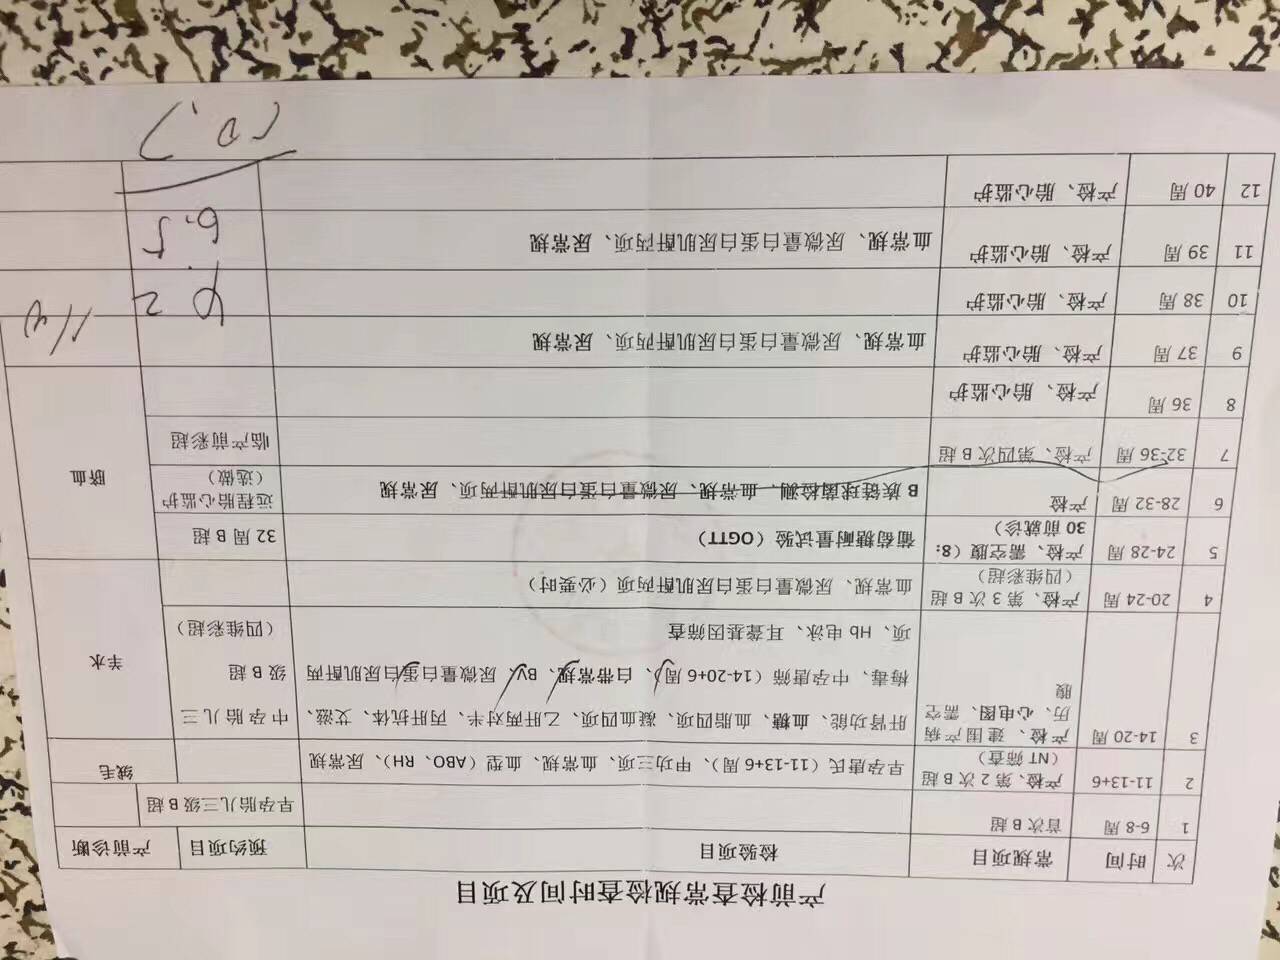 产前检查常规检查时间及项目
次 时间 常规项目 检验项目 预约项目 产前诊断
1 6-8 周 首次 B 超 早孕胎儿三级 B 超
2 11-13+6 产检、第 2 次 B 超
（NT 筛查） 早孕唐氏（11-13+6 周）、甲功三项、血常规、血型（ABO、RH）、尿常规 绒毛
3 14-20 周 产检、建围产病
历、心电图、需空
腹 肝肾功能、血糖、血脂四项、凝血四项、乙肝两对半、丙肝抗体、艾滋、
梅毒、中孕唐筛（14-20+6 周）、白带常规、BV、尿微量白蛋白尿肌酐两
项、Hb 电泳、耳聋基因筛查 中孕胎儿三
级 B 超
（四维彩超） 羊水
4 20-24 周 产检、第 3 次 B 超
（四维彩超） 血常规、尿微量白蛋白尿肌酐两项（必要时）
5 24-28 周 产检、需空腹（8：
30 前就诊） 葡萄糖耐量试验（OGTT） 32 周 B 超
6 28-32 周 产检 B 族链球菌检测、血常规、尿微量白蛋白尿肌酐两项、尿常规 远程胎心监护
（选做） 脐血
7 32-36 周 产检、第四次 B 超 临产前彩超
8 36 周 产检、胎心监护
9 37 周 产检、胎心监护 血常规、尿微量白蛋白尿肌酐两项、尿常规
10 38 周 产检、胎心监护
11 39 周 产检、胎心监护 血常规、尿微量白蛋白尿肌酐两项、尿常规
12 40 周 产检、胎心监护